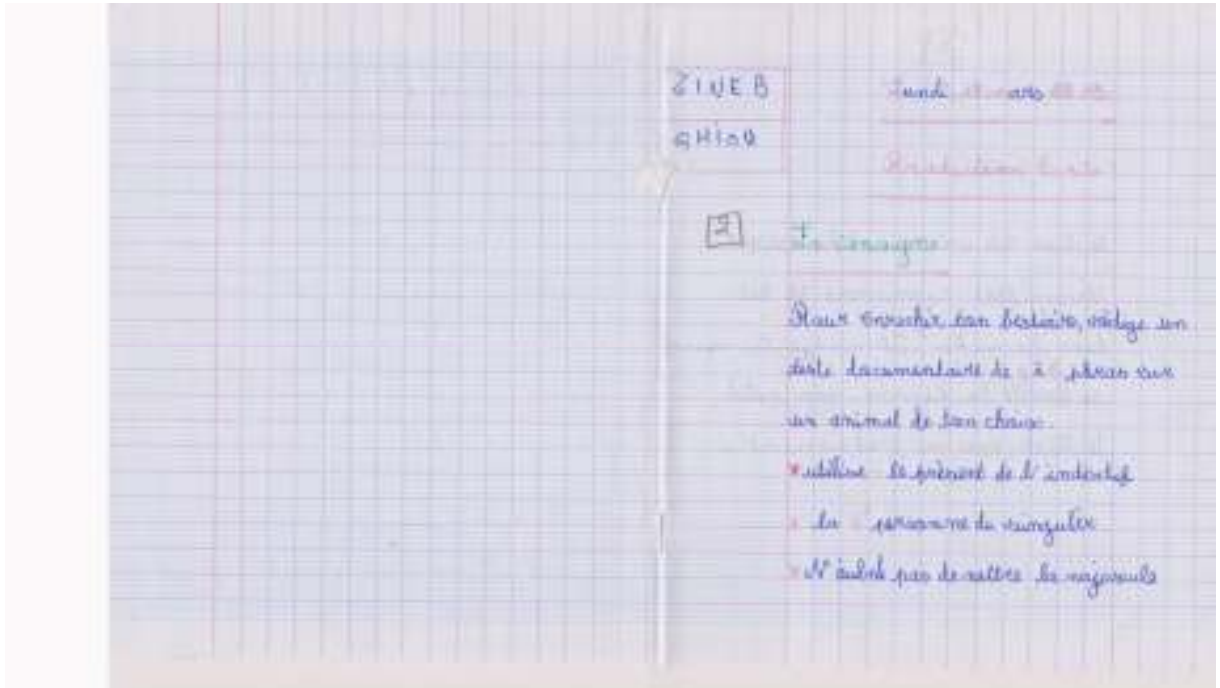 ZINEB
GHIOU
Lundi mars
2
La consigne
Pour enrichir ton bestiaire, rédige un
texte documentaire de à phras sur
un animal de ton choix.
* utilise le présent de l'indicatif
* la personne du singulier
* N'oublie pas de mettre la majuscule